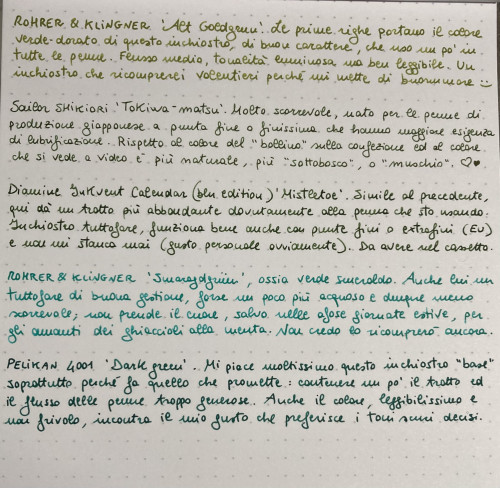 ROHRER & KLINGNER 'Alt Goldgrün'. Le prime righe portano il colore
verde-dorato di questo inchiostro, di buon carattere, che uso un po' in
tutte le penne. Flusso medio, tonalità luminosa ma ben leggibile. Un
inchiostro che ricomprerei volentieri perché mi mette di buonumore :)
Sailor SHIKIORI 'Tokiwa-matsu'. Molto scorrevole, nato per le penne di
produzione giapponese a punta fine o finissima che hanno maggiore esigenza
di lubrificazione. Rispetto al colore del "bollino" sulla confezione ed al colore
che si vede a video è più naturale, più "sottobosco", o "muschio". ♡♥.
Diamine Inkvent Calendar (blu edition) 'Mistletoe'. Simile al precedente,
qui dà un tratto più abbondante dovutamente alla penna che sto usando.
Inchiostro tuttofare, funziona bene anche con punte fini o extrafini (EU)
e non mi stanca mai (gusto personale ovviamente). Da avere nel cassetto.
ROHRER & KLINGNER 'Smaragdgrün', ossia verde smeraldo. Anche lui un
tuttofare di buona gestione, forse un poco più acquoso e dunque meno
scorrevole; non prende il cuore, salvo nelle afose giornate estive, per
gli amanti dei ghiaccioli alla menta. Non credo lo ricomprerò ancora.
PELIKAN 4001 'Dark green'. Mi piace moltissimo questo inchiostro "base"
soprattutto perché fa quello che promette: contenere un po' il tratto ed
il flusso delle penne troppo generose. Anche il colore, leggibilissimo e
non frivolo, incontra il mio gusto che preferisce i toni scuri decisi.